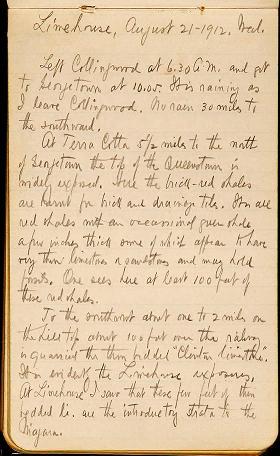 Limehouse, August 21-1912. Wed.
Left Collingwood at 6.30 A.M. and got
to Georgetown at 10.05. It is raining as
I leave Collingwood. No rain 30 miles to
the southward.
At Terra Cotta 5 1/2 miles to the north
of Georgetown the top of the Queenston is
widely exposed. Here the brick-red shales
are burnt for brick and drainage tile. It is all
red shales with an occasional green shale
a few inches thick some of which appear to have
very thin limestones or sandstones and may hold
fossils. One sees here at least 100 feet of
these red shales.
To the southwest about one to 2 miles on
the hill top about 100 feet over the railway
is quarried the thin bedded "Clinton limestone".
It is evidently the Limehouse exposures.
At Limehouse I saw that these few feet of thin
bedded ls. are the introductory strata to the
Niagara.